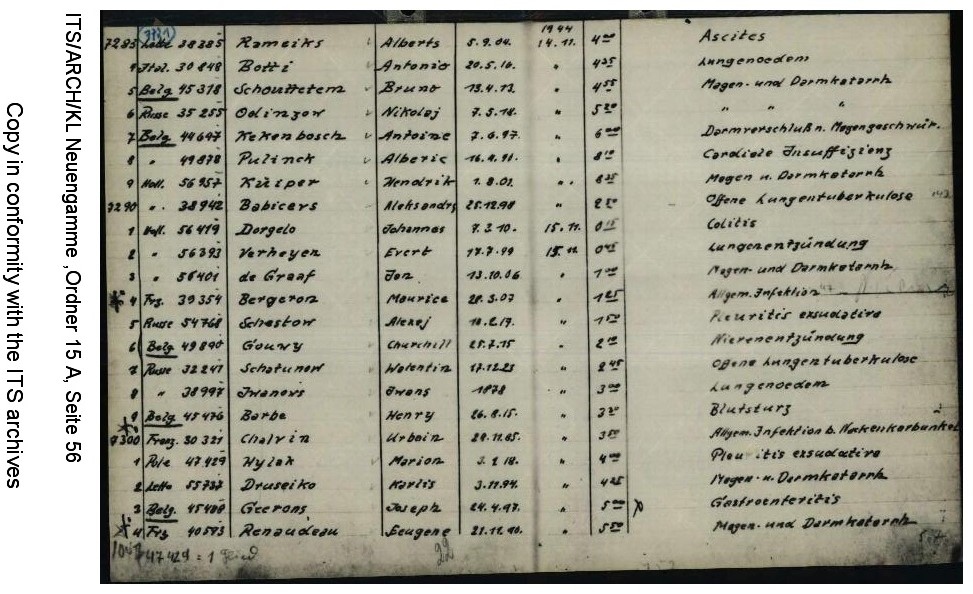 ITS/ARCH/KL Neuengamme ,Ordner 15 A, Seite 56
Copy in conformity with the ITS archives
1944
7285 38385 Rameiks Alberts 5.9.04. 14.11. 4 00 Ascites
Ital. 30848 Botti Antonio 20.5.16. " 4 35 Lungenoedem
5 Belg 45318 Bruno 13.4.13. " 4 55 Magen- und Darmkatarrh
6 Russe 35255 Odinzow Nikolaj 7.5.14. " 5 20 " " "
7 Belg. 44647 Kekenbosch Antoine 7.6.97. " 6 00 Darmverschluß n. Magengeschwür.
8 " 49878 Pulinck Alberic 16.4.91. " 8 10 Cardiale Insuffizienz
9 Holl. 56957 Küiper Hendrik 1.8.01. " 8 35 Magen u. Darmkatarrh
7290 " 38942 Babicevs Aleksandrs 25.12.98 " Offene Lungentuberkulose
1 Holl. 56419 Dorgelo Johannes 7.3.10. 15.11. 0 15 Colitis
2 " 56393 Verheyen Evert 17.7.99 15.11. 0 45 Lungenentzündung
3 " 56401 de Graaf Jan 13.10.06 " 1 00 Magen- und Darmkatarrh
4 Frz. 39354 Bergeron Maurice 28.3.07 " 1 25 Allgem. Infektion
5 Russe 54768 Schestow Alexej 18.2.19. " 1 50 Pleuritis exsudativa
6 Belg 49890 Gouwy Churchill 25.7.15 " 2 10 Nierenentzündung
7 Russe 32241 Schatunow Walentin 17.12.23 " 2 45 Offene Lungentuberkulose
8 " 38997 Iwanovs Iwans 1878 " 3 00 Lungenoedem
9 Belg 45476 Barbe Henry 26.8.15. " 3 20 Blutsturz
7300 Franz. 30321 Chalvin Urbain 29.11.05. " 3 50 Allgem. Infektion b. Nackenkarbunkel
1 Pole 47429 Wylak Marian 3.2.18. " 4 00 Pleuritis exsudativa
2 Lette 55737 Druseiko Karlis 3.11.94. " 4 25 Magen- u. Darmkatarrh
3 Belg. 45480 Geerons Joseph 24.4.17. " 5 00 Gastroenteritis
4 Frz 40593 Renaudeau Eeugene 21.11.10. " 5 50 Magen- und Darmkatarrh
47429 = 1
22